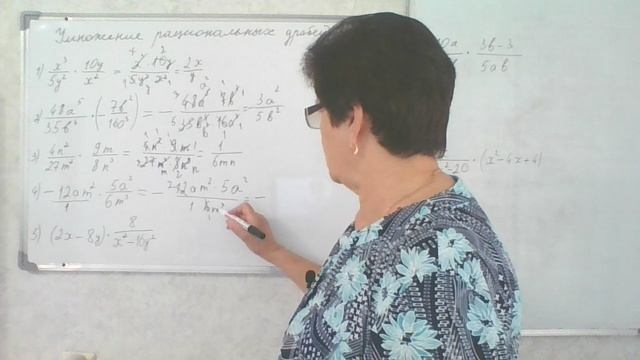 Умножение рациональных дробей
1) x³/5y² · 10y/x² = x³ · 10y/5y² · x² = 2x/y
2) 48a⁵/35b⁴ · (− 7b²/16a³) = − 48a⁵ · 7b²/35b⁴ · 16a³ = 3a²/5b²
3) 4n²/27m² · 9m/8n³ = 4n² · 9m/27m² · 8n³ = 1/6mn
4) − 12am²/1 · 5a²/6m³ = − 12am² · 5a²/1 · 6m³ = −
5) (2x − 8y) · 8/x² − 16y²
10a · 3b − 3/5ab
− 20 · (x² − 4x + 4)